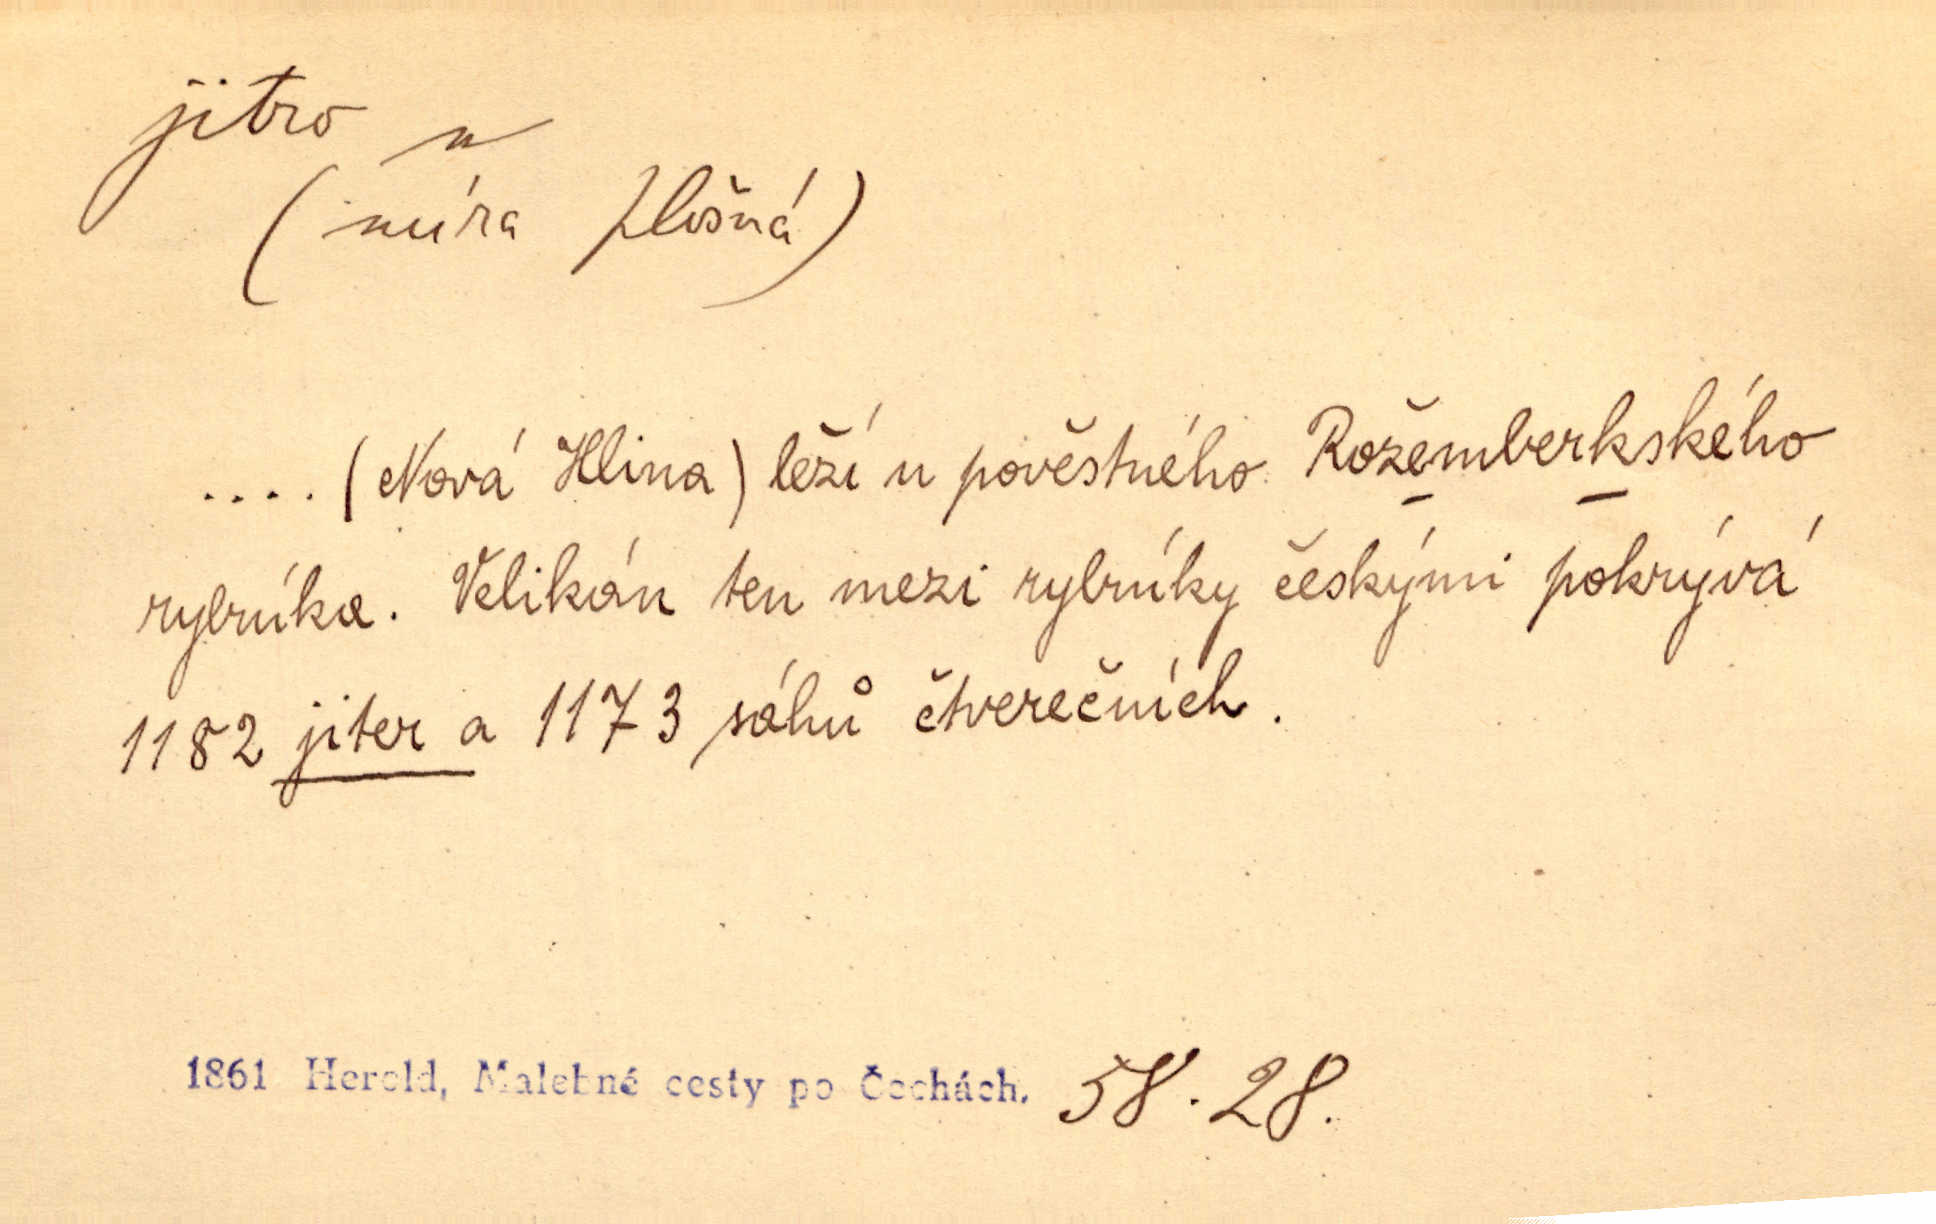 jitro n
(míra plošná)
.... (Nová Hlina) leží u pověstného Rožemberkského
rybníka. Velikán ten mezi rybníky českými pokrývá
1182 jiter a 1173 sáhů čtverečních.
1861 Herold, Malebné cesty po Čechách. 58. 28.